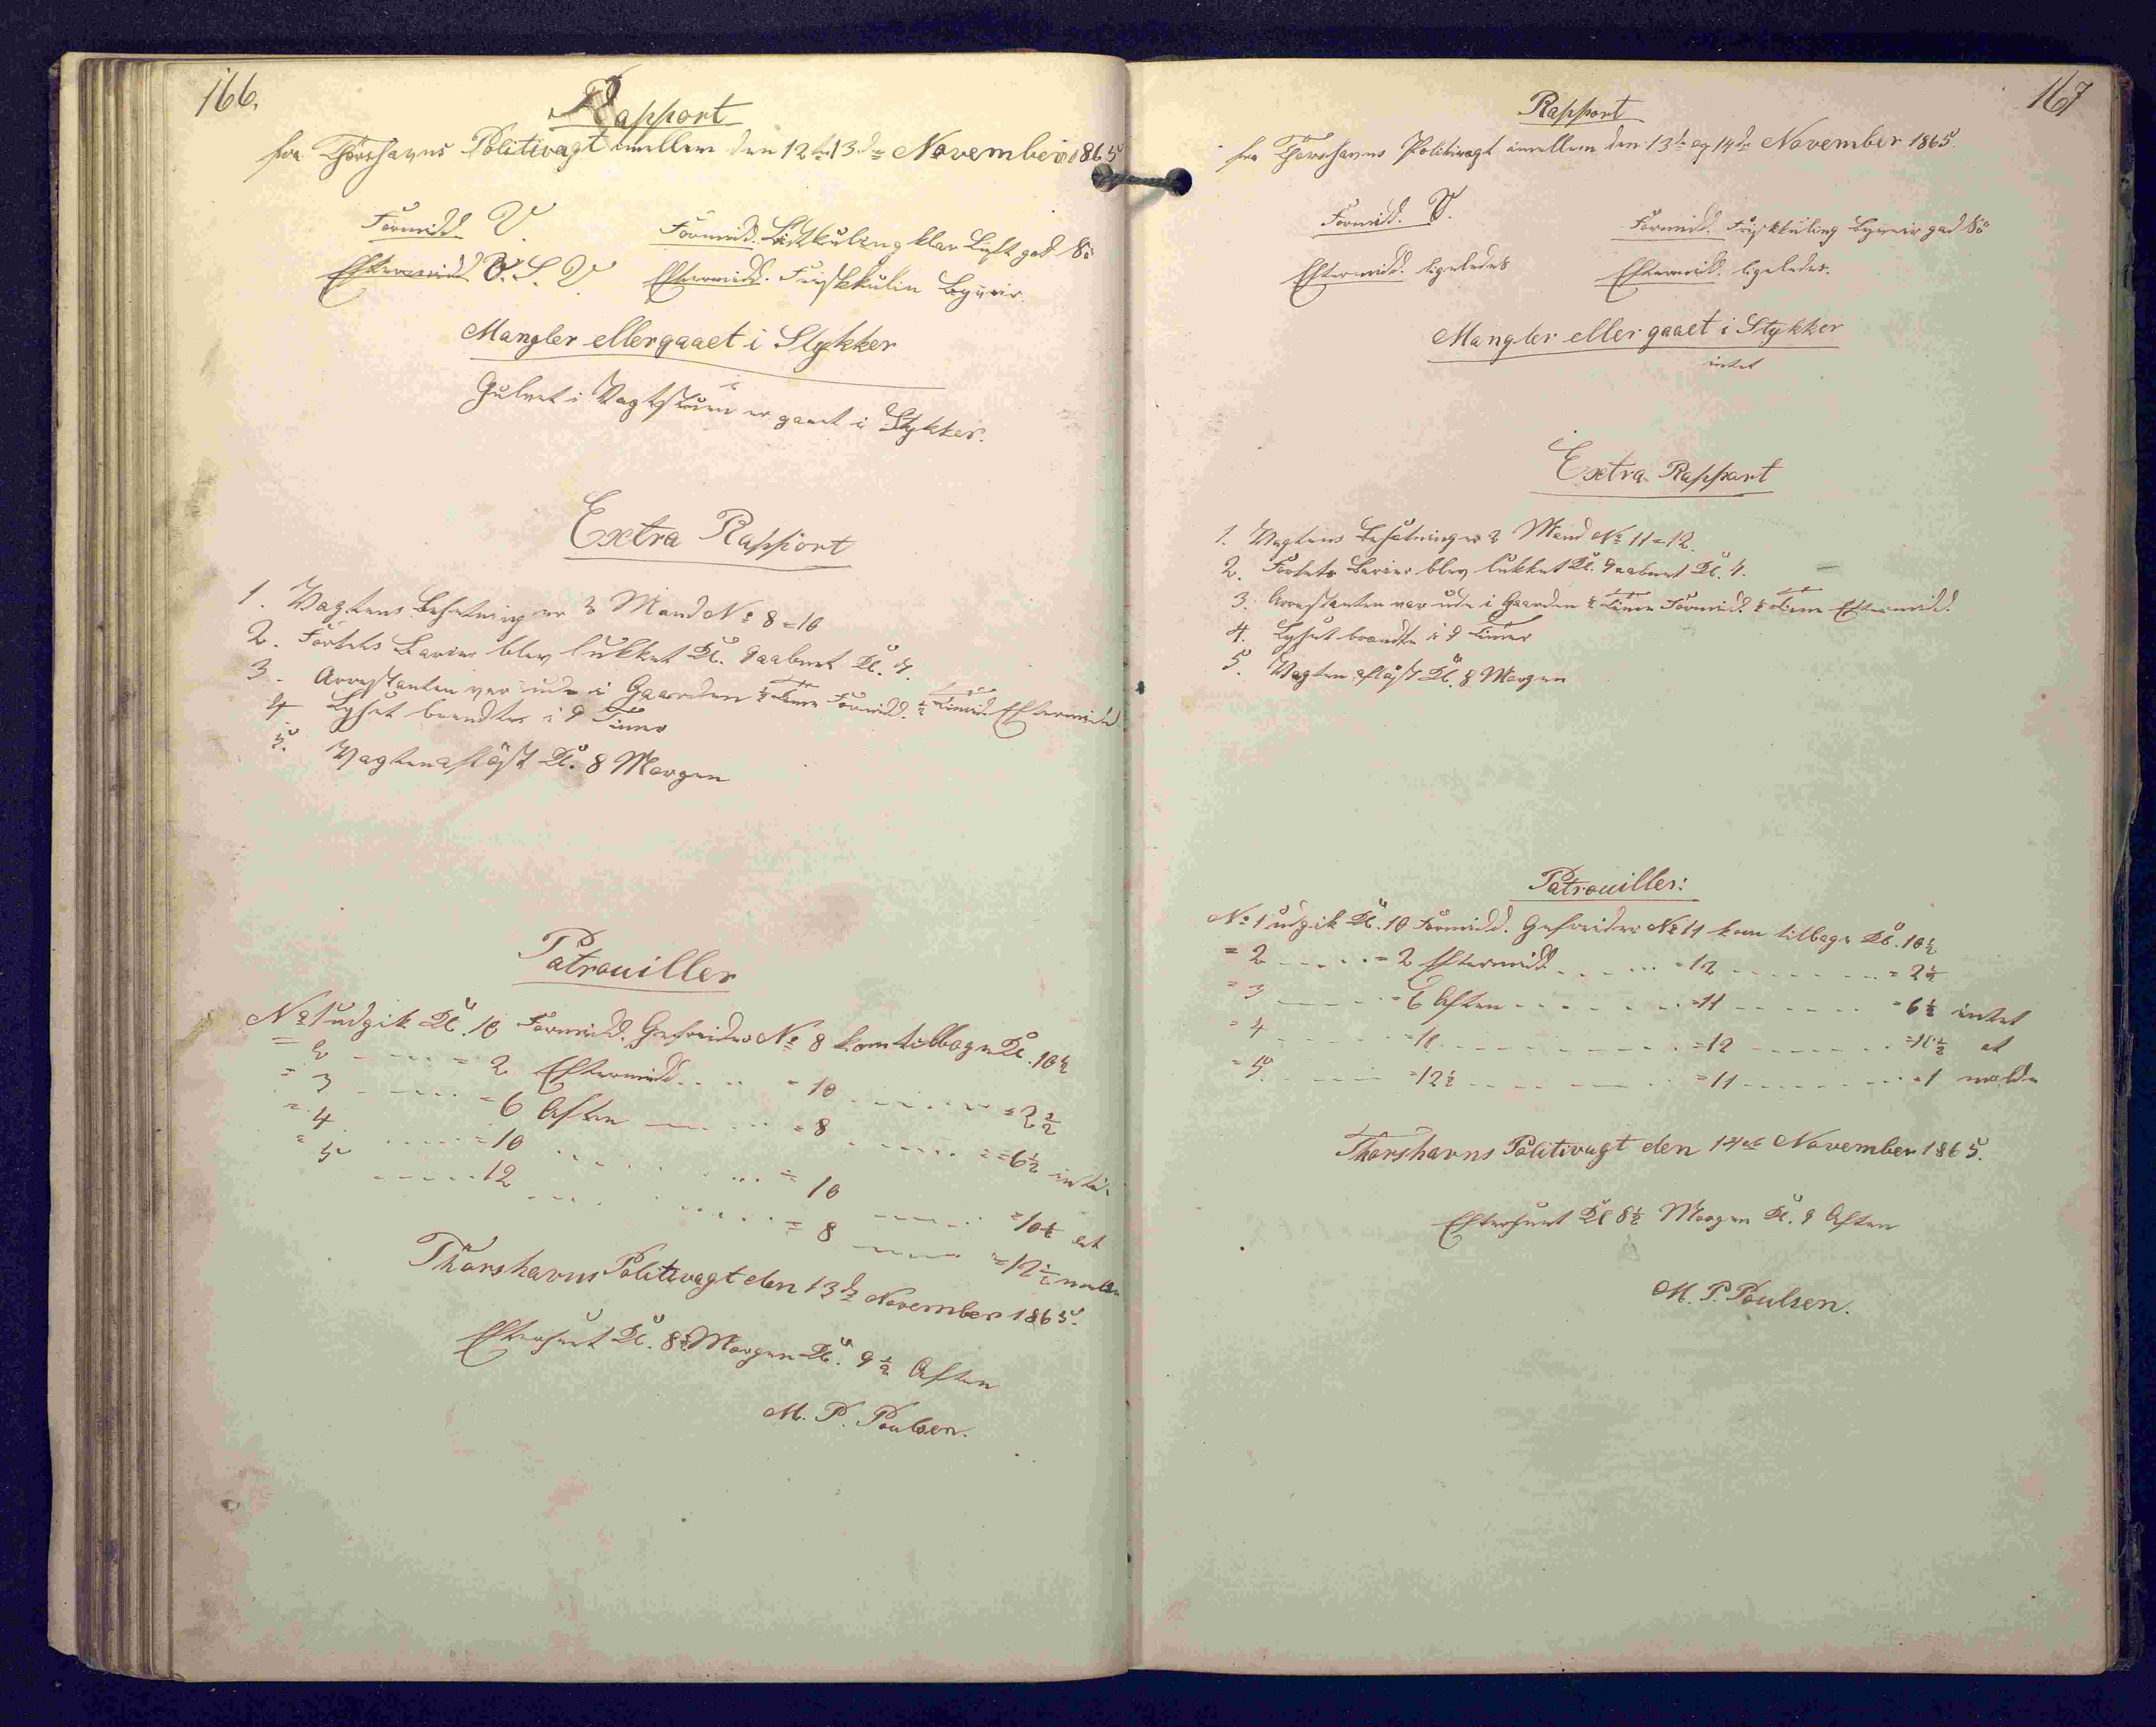 166.
Rapport
fra Thorshavns Politivagt imellem den 12te 13de November 1865
Formidd. V Formidd. Lidt kuling klar Luft god Sö
Eftermidd V.S.V Eftermidd. Frisk kulin Bgveir.
Mangler eller gaaet i Stykker
Gulvet i Vagtstuen er gaaet i Stykker.
Extra Rapport
1. Vagtens Besetning er 3 Mand No 8 = 10
2. Fortets Barier blev lukket Kl. 9 aabnet Kl. 7.
3. Arrestanten var ude i Gaarden ½ Time Formidd. ½ Time Eftermidd
4 Lyset brendte i 9 Timer
5. Vagten aflöst Kl. 8 Morgen
Patrouiller
No 1 udgik Kl. 10 Formidd. Gefreider No 8 kom tilbage Kl. 10½
= 2 - - - - = 2 Eftermidd. . . . = 10 - - - - = 2½
= 3 - - - - = 6 Aften - - - - = 8 - - - - = 6½ intet
= 4 - - - - = 10 - - - - = 10 - - - - = 10½ at
= 5 - - - - 12 - - - - = 8 - - - - = 12½ melde
Thorshavns Politivagt den 13de November 1865.
Efterseet Kl. 8½ Morgen Kl. 9½ Aften
M. P. Poulsen.
167
Rapport
fra Thorshavns Politivagt imellem den 13de og 14de November 1865.
Formidd. V. Formidd. Frisk kuling Bgveir god Sö
Eftermidd. ligeledes Eftermidd. ligeledes.
Mangler eller gaaet i Stykker
intet
Extra Rapport
1. Vagtens Besætning er 3 Mand No 11 = 12.
2. Fortets Barier blev lukket Kl. 9 aabnet Kl. 7.
3. Arrestanten var ude i Gaarden ½ Time Formidd. ½ Time Eftermidd.
4. Lyset brændte i 9 Timer
5. Vagten aflöst Kl. 8 Morgen
Patrouiller:
No 1 udgik Kl. 10 Formidd. Gefreider No 11 kom tilbage Kl. 10½
= 2 - - - - = 2 Eftermidd. - - - - = 12 - - - - = 2½
= 3 - - - - = 6 Aften - - - - = 11 - - - - = 6½ intet
= 4 - - - - = 10 - - - - = 12 - - - - = 10½ at
= 5. - - - - = 12½ - - - - = 11 - - - - = 1 melde
Thorshavns Politivagt den 14de November 1865.
Efterseet Kl 8½ Morgen Kl. 9 Aften
M. P. Poulsen.